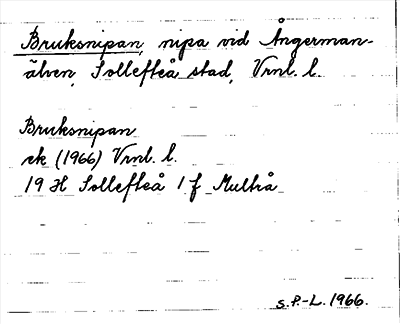 Bruksnipan, nipa vid Ångerman-
älven, Sollefteå stad, Vrnl. l.
Bruksnipan
ek (1966) Vrnl. l.
19 H Sollefteå 1 f Multrå
s. P.-L. 1966.